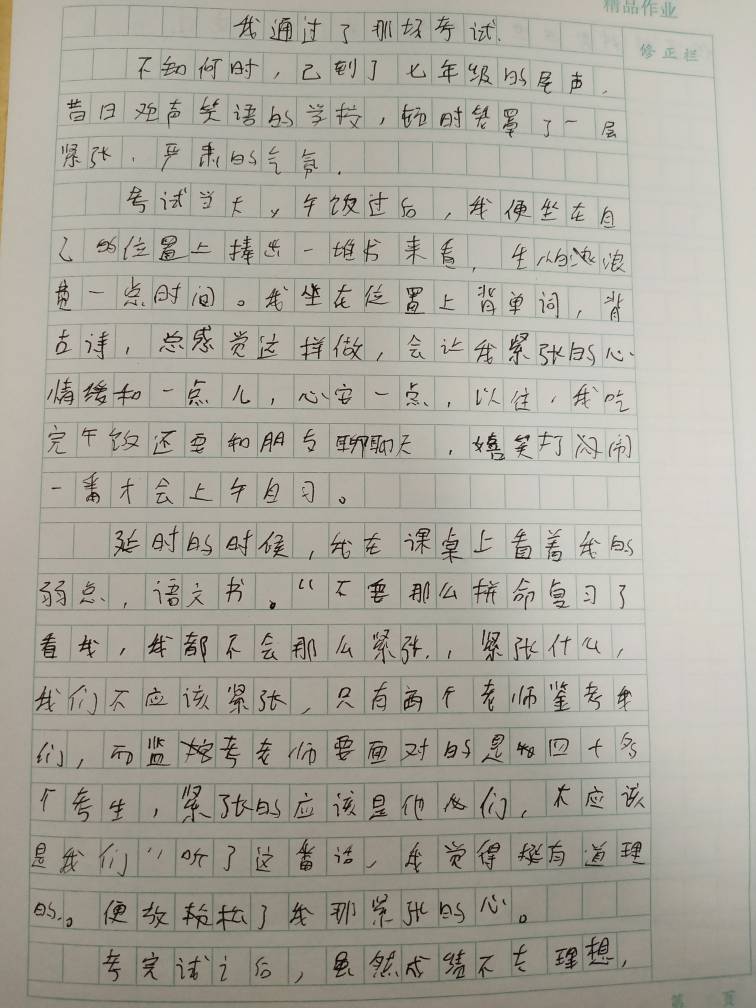 精品作业
修正栏
我通过了那场考试.
不知何时，已到了七年级的尾声，
昔日欢声笑语的学校，顿时笼罩了一层
紧张、严肃的气氛.
考试当天，午饭过后，我便坐在自
己的位置上捧出一堆书来看，生怕浪
费一点时间。我坐在位置上背单词，背
古诗，总感觉这样做，会让我紧张的心
情缓和一点儿，心安一点，以往，我吃
完午饭还要和朋友聊聊天，嬉笑打闹
一番才会上午自习。
延时的时候，我在课桌上看着我的
弱点，语文书。“不要那么拼命复习了
看我，我都不会那么紧张，紧张什么，
我们不应该紧张，只有两个老师鉴考我
们，而监考老师要面对的是四十多
个考生，紧张的应该是他们，不应该
是我们”听了这番话，我觉得挺有道理
的。便放轻松了我那紧张的心。
考完试之后，虽然成绩不太理想，
第 页